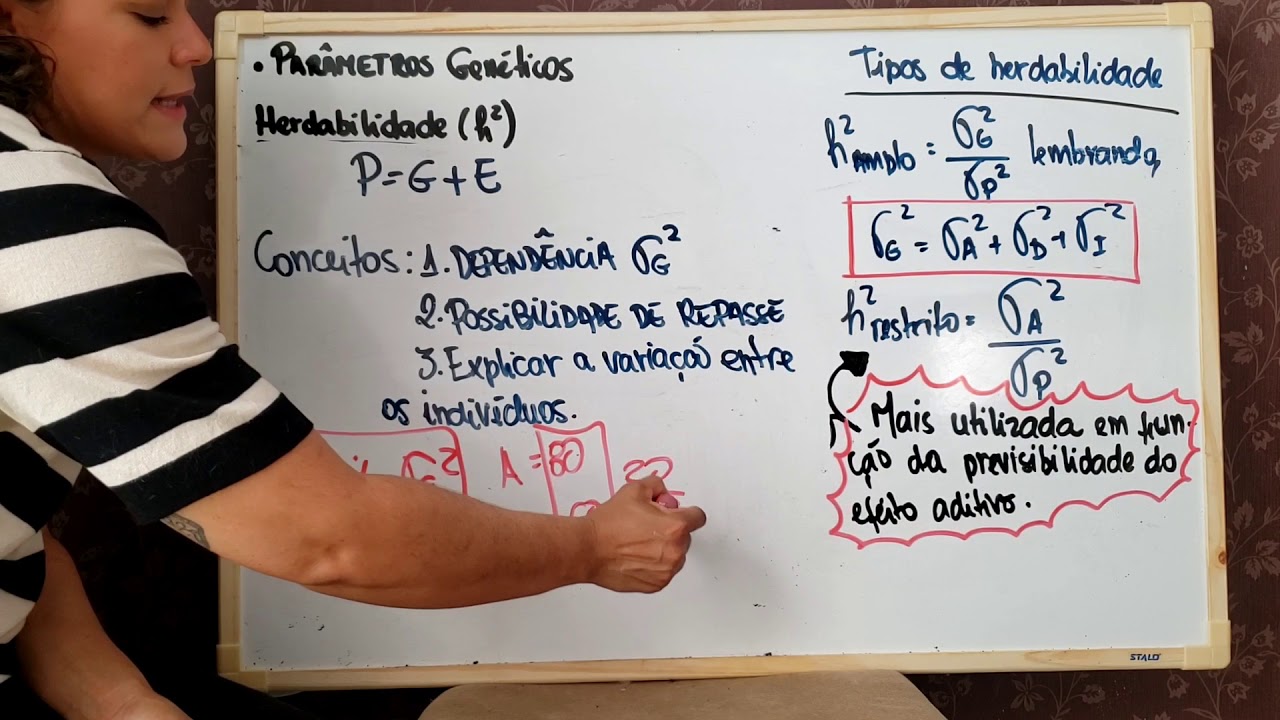 • PARÂMETROS Genéticos
Herdabilidade (h²)
P = G + E
Conceitos: 1. DEPENDÊNCIA σG²
2. POSSIBILIDADE DE REPASSE
3. Explicar a variação entre
os indivíduos.
σG² A = 80 20
Tipos de herdabilidade
h² AMPLO = σG² / σP² lembrando,
σG² = σA² + σD² + σI²
h² restrito = σA² / σP²
Mais utilizada em fun-
ção da previsibilidade do
efeito aditivo.
STALO